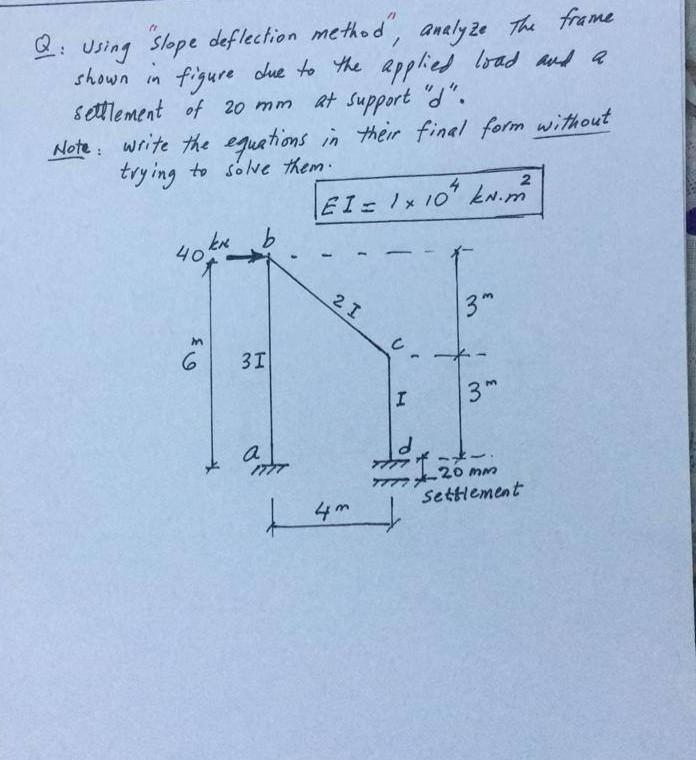 Q: Using "slope deflection method", analyze The frame
shown in figure due to the applied load and a
settlement of 20 mm at support "d".
Note: write the equations in their final form without
trying to solve them.
EI = 1 x 10⁴ kN.m²
40 kN b
2I 3m
6m 3I c
I 3m
a d
20 mm
settlement
4m